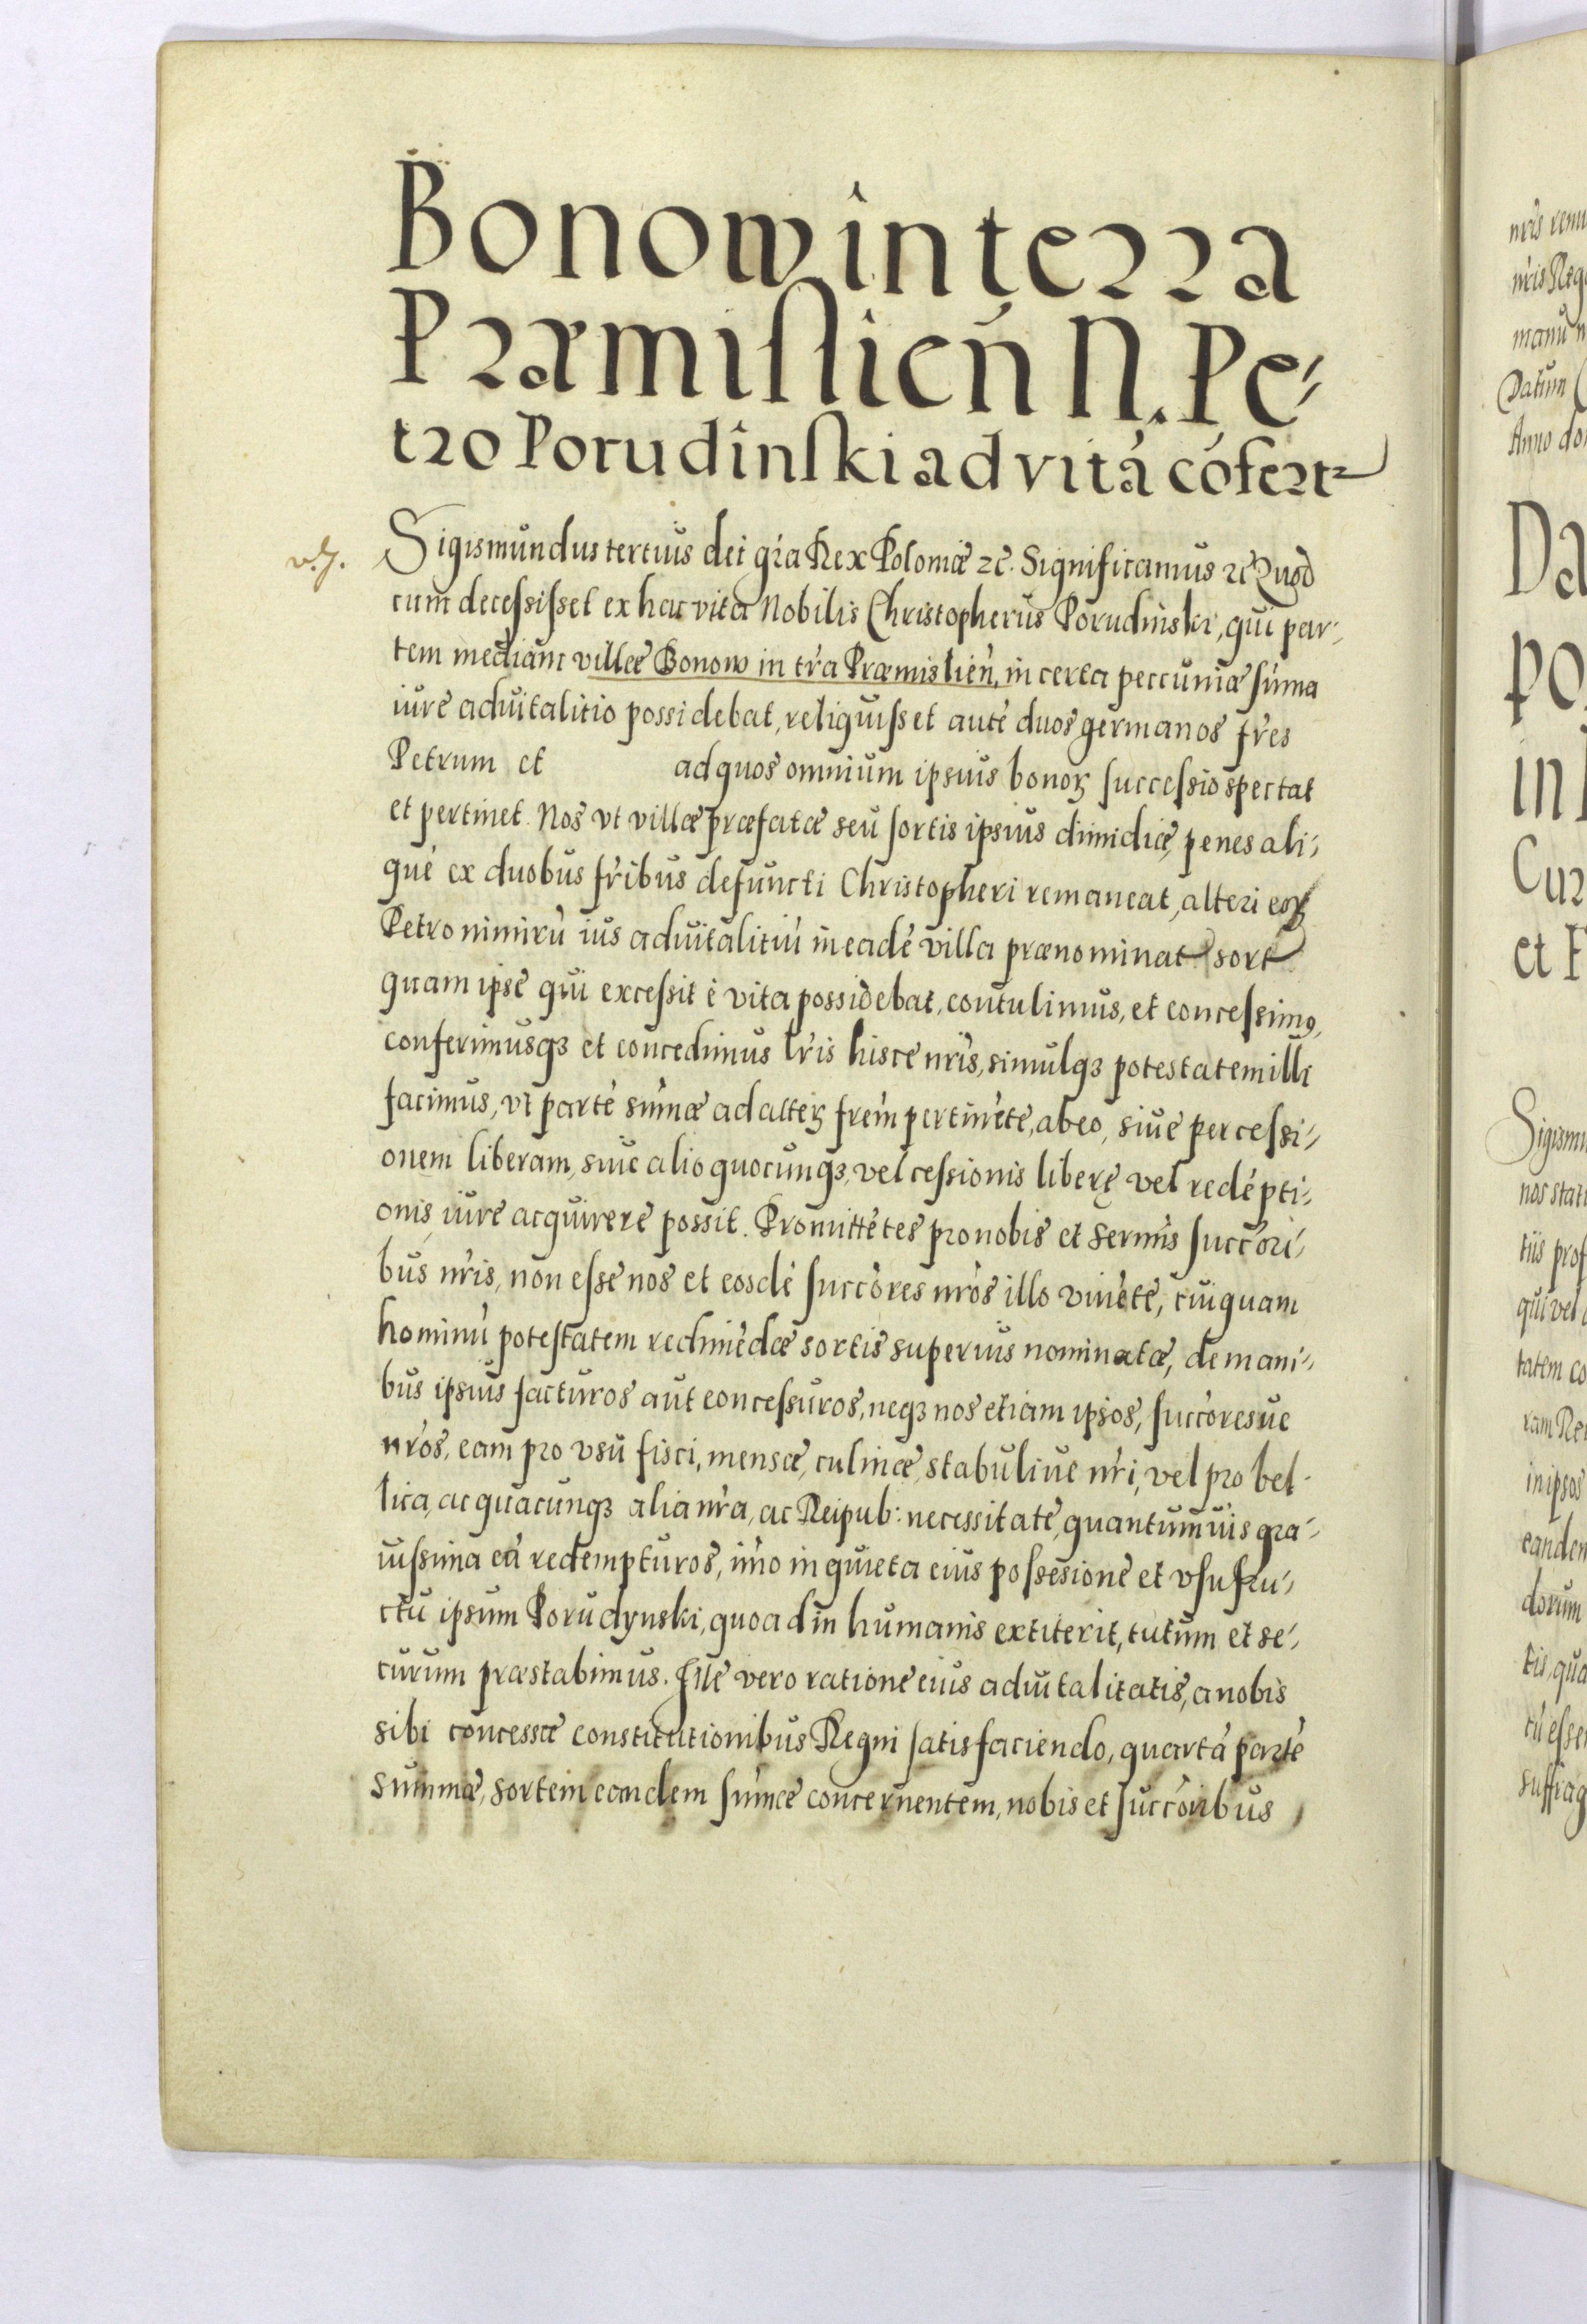 Bonow in terra
Præmislień N. Pe-
tro Porudinski ad vitá cófert
Sigismundus tertius dei gřa Rex Poloniæ ꝛc̃. Significamus ꝛc̃ Quod
cum decessisset ex hac vita Nobilis Christopherus Porudinski, qui par-
tem mediam villæ Bonow in třa Præmislień, in certa peccuniæ sum̃a
iure aduitalitio possidebat, reliquisset auté duos germanos fřes
Petrum et ad quos omnium ipsius bonoꝝ successio spectat
et pertinet. Nos vt villæ præfatæ seu sortis ipsius dimidiæ, penes ali-
qué ex duobus fřibus defuncti Christopheri remaneat, alteri eoꝝ
Petro nimirú ius aduitalitiú in eadé villa prænominat sort
quam ipse qui excessit è vita possidebat, contulimus, et concessimꝰ,
conferimusqꝫ et concedimus lřis hisce nřis, simulqꝫ potestatem illi
facimus, vt parté sum̃æ ad alteꝝ frem̃ pertinéte, ab eo, siue per cessi-
onem liberam, siue alio quocunqꝫ, vel cessionis liberę vel redépti-
onis iure acquirere possit. Promittétes pro nobis et Serm̃is succo͠ri-
bus nřis, non esse nos et eosdé succo͠res nřos illo viuéte, cuiquam
hominú potestatem redimédæ sortis superius nominatæ, de mani-
bus ipsius facturos aut concessuros, neqꝫ nos etiam ipsos, succo͠resue
nřos, eam pro vsu fisci, mensæ, culinæ, stabuliue nři, vel pro bel-
lica, ac quacunqꝫ alia nřa, ac Reipub: necessitate, quantumuis gra-
uissima eá redempturos, im̃o in quieta eius possesione et vsufru-
ctu ipsum Porudynski, quoad in humanis extiterit, tutum et se-
curum præstabimus. Ille vero ratione eius aduitalitatis, a nobis
sibi concessæ constitutionibus Regni satisfaciendo, quartá parté
summæ, sortem eandem sum̃æ concernentem, nobis et succo͠ribus